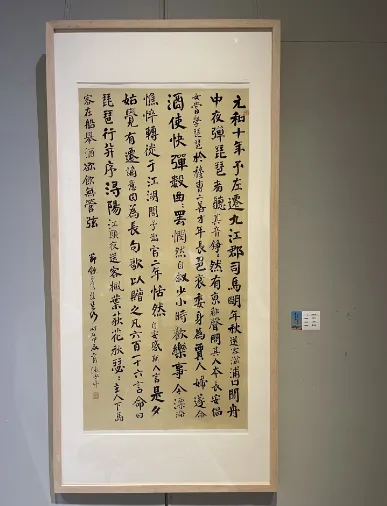 元和十年予左遷九江郡司馬明年秋送客湓浦口聞舟
中夜彈琵琶者聽其音錚〻然有京都聲問其人本長安倡
女嘗學琵琶於穆曹二善才年長色衰委身為賈人婦遂命
酒使快彈數曲〻罷憫然自敘少小時歡樂事今漂淪
憔悴轉徙于江湖間予出官二年恬然自安感斯人言是夕
始覺有遷謫意因為長句歌以贈之凡六百一十六言命曰
琵琶行并序潯陽江頭夜送客楓葉荻花秋瑟〻主人下馬
客在船舉酒欲飲無管弦
節錄